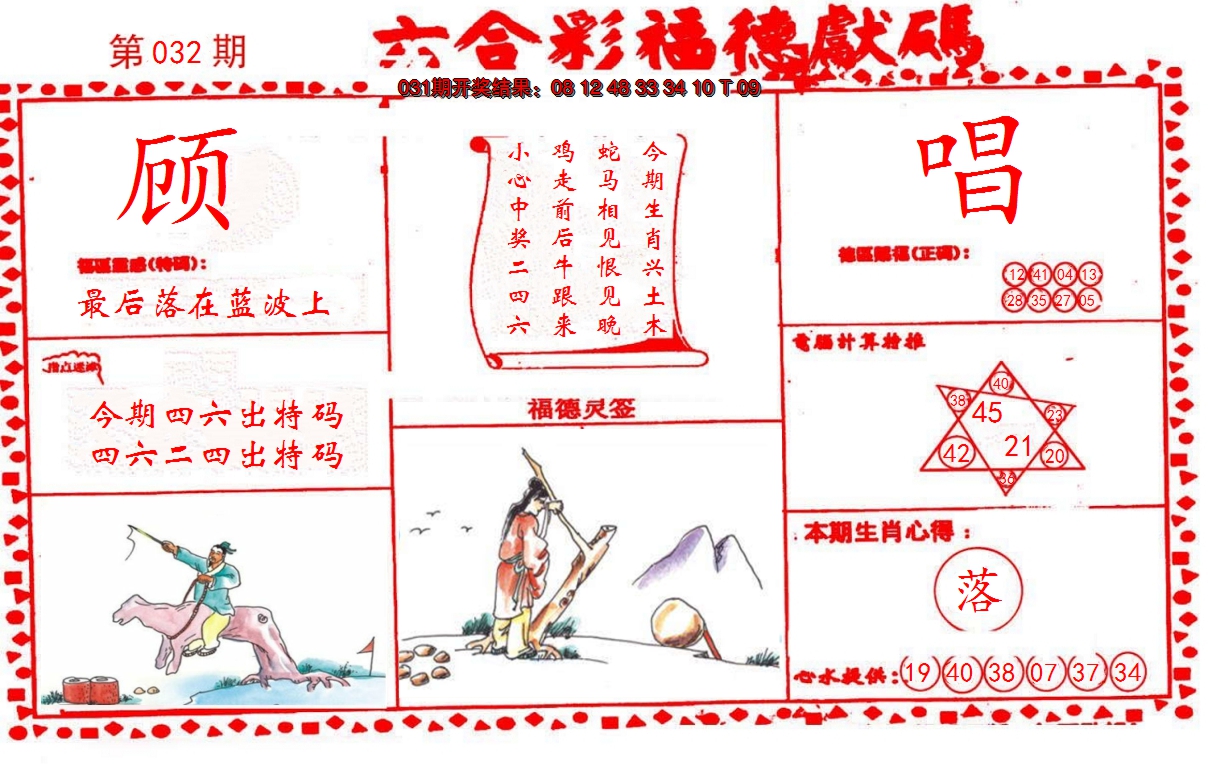 第032期
六合彩福德獻碼
031期开奖结果：08 12 48 33 34 10 T 09
顾
福區靈感(特碼)：
最后落在蓝波上
今期生肖兴土木
蛇马相见恨见晚
鸡走前后牛跟来
小心中奖二四六
唱
德區賜福(正碼)：
12 41 04 13
28 35 27 05
指点迷津
今期四六出特码
四六二四出特码
福德灵签
電腦計算推
40
38 45 23
42 21 20
36
本期生肖心得：
落
心水提供：19 40 38 07 37 34